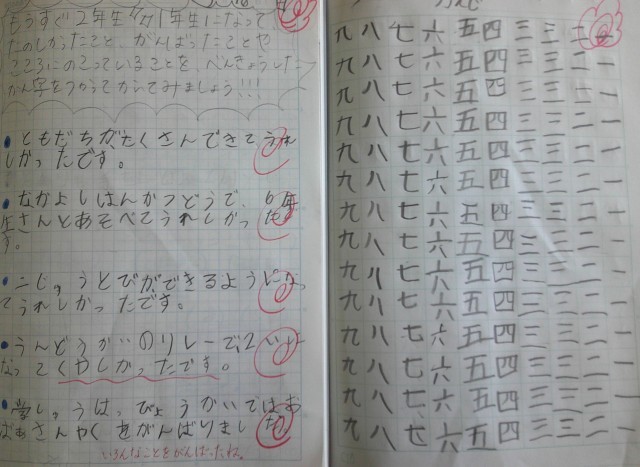 もうすぐ2年生 1年生になって、
たのしかったこと、がんばったことや
こころにのこっていることを、べんきょうした
かん字をつかってかいてみましょう!!!
•ともだちがたくさんできてうれ
しかったです。
•なかよしはんかつどうで、6年
生さんとあそべてうれしかったで
す。
•二じゅうとびができるようになっ
てうれしかったです。
•うんどうかいのリレーで、2いに
なってくやしかったです。
•学しゅうはっぴょうかいではお
ばあさんやくをがんばりました。
いろんなことをがんばったね。
九八七六五四三三二一
九八七六五四三三二一
九八七六五四三三二一
九八七六五四三三二一
九八七六五四三三二一
九八七六五四三三二一
九八七六五四三三二一
九八七六五四三三二一
九八七六五四三三二一
九八七六五四三三二一
九八七六五四三三二一
九八七六五四三三二一
九八七六五四三三二一
九八七六五四三三二一